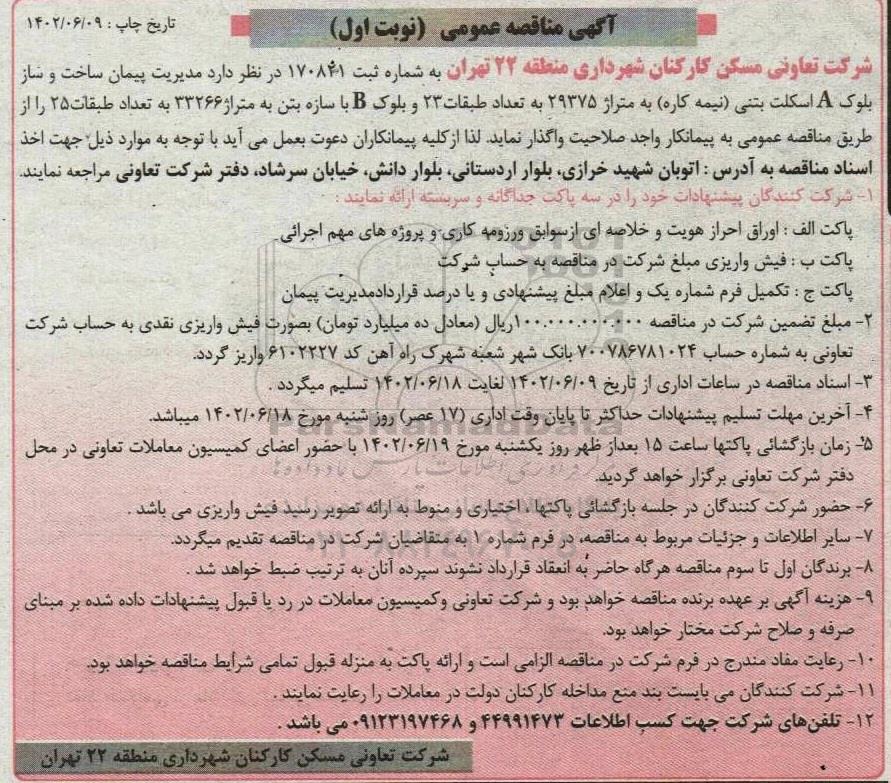 آگهی مناقصه عمومی (نوبت اول)
تاریخ چاپ : ۱۴۰۲/۰۶/۰۹
شرکت تعاونی مسکن کارکنان شهرداری منطقه ۲۲ تهران به شماره ثبت ۱۷۰۸۴۱ در نظر دارد مدیریت پیمان ساخت و ساز
بلوک A اسکلت بتنی (نیمه کاره) به متراژ ۲۹۳۷۵ به تعداد طبقات۲۳ و بلوک B با سازه بتن به متراژ۳۳۲۶۶ به تعداد طبقات۲۵ را از
طریق مناقصه عمومی به پیمانکار واجد صلاحیت واگذار نماید. لذا ازکلیه پیمانکاران دعوت بعمل می آید با توجه به موارد ذیل جهت اخذ
اسناد مناقصه به آدرس : اتوبان شهید خرازی، بلوار اردستانی، بلوار دانش، خیابان سرشاد، دفتر شرکت تعاونی مراجعه نمایند.
۱- شرکت کنندگان پیشنهادات خود را در سه پاکت جداگانه و سربسته ارائه نمایند :
پاکت الف : اوراق احراز هویت و خلاصه ای ازسوابق ورزومه کاری و پروژه های مهم اجرائی.
پاکت ب : فیش واریزی مبلغ شرکت در مناقصه به حساب شرکت
پاکت ج : تکمیل فرم شماره یک و اعلام مبلغ پیشنهادی و یا درصد قراردادمدیریت پیمان
۲- مبلغ تضمین شرکت در مناقصه ۱۰۰.۰۰۰.۰۰۰.۰۰۰ریال (معادل ده میلیارد تومان) بصورت فیش واریزی نقدی به حساب شرکت
تعاونی به شماره حساب ۷۰۰۷۸۶۷۸۱۰۲۴ بانک شهر شعبه شهرک راه آهن کد ۶۱۰۲۲۲۷ واریز گردد.
۳- اسناد مناقصه در ساعات اداری از تاریخ ۱۴۰۲/۰۶/۰۹ لغایت ۱۴۰۲/۰۶/۱۸ تسلیم میگردد .
۴- آخرین مهلت تسلیم پیشنهادات حداکثر تا پایان وقت اداری (۱۷ عصر) روز شنبه مورخ ۱۴۰۲/۰۶/۱۸ میباشد.
۵- زمان بازگشائی پاکتها ساعت ۱۵ بعداز ظهر روز یکشنبه مورخ ۱۴۰۲/۰۶/۱۹ با حضور اعضای کمیسیون معاملات تعاونی در محل
دفتر شرکت تعاونی برگزار خواهد گردید.
۶- حضور شرکت کنندگان در جلسه بازگشائی پاکتها، اختیاری و منوط به ارائه تصویر رسید فیش واریزی می باشد .
۷- سایر اطلاعات و جزئیات مربوط به مناقصه، در فرم شماره ۱ به متقاضیان شرکت در مناقصه تقدیم میگردد.
۸- برندگان اول تا سوم مناقصه هرگاه حاضر به انعقاد قرارداد نشوند سپرده آنان به ترتیب ضبط خواهد شد .
۹- هزینه آگهی بر عهده برنده مناقصه خواهد بود و شرکت تعاونی وکمیسیون معاملات در رد یا قبول پیشنهادات داده شده بر مبنای
صرفه و صلاح شرکت مختار خواهد بود.
۱۰- رعایت مفاد مندرج در فرم شرکت در مناقصه الزامی است و ارائه پاکت به منزله قبول تمامی شرایط مناقصه خواهد بود.
۱۱- شرکت کنندگان می بایست بند منع مداخله کارکنان دولت در معاملات را رعایت نمایند .
۱۲- تلفن‌های شرکت جهت کسب اطلاعات ۴۴۹۹۱۴۷۳ و ۰۹۱۲۳۱۹۷۴۶۸ می باشد .
شرکت تعاونی مسکن کارکنان شهرداری منطقه ۲۲ تهران
ParsNamadData